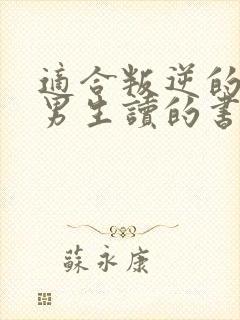 適合叛逆的
男生讀的書
蘇永康